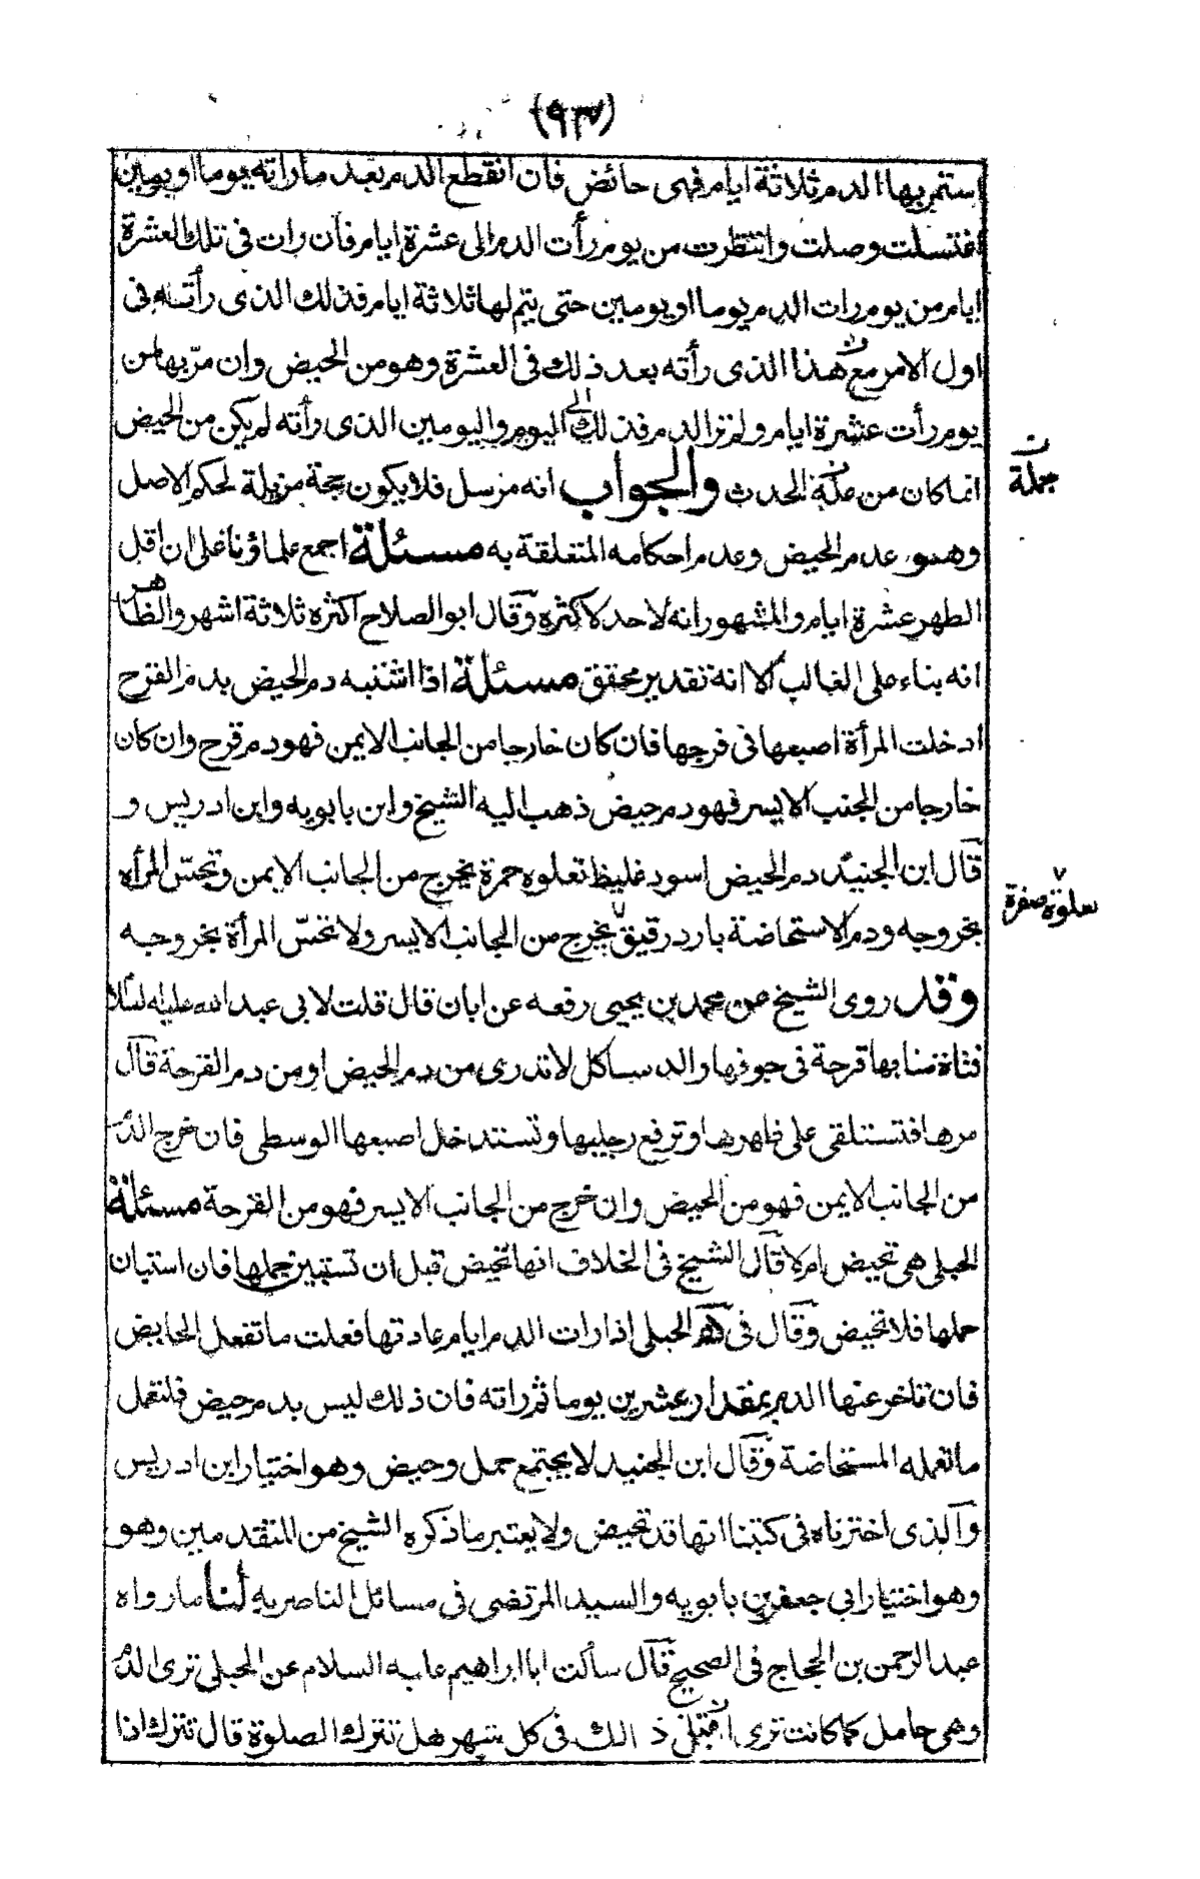 (٩٣)
استمر بها الدم ثلاثة ايام فهى حائض فان انقطع الدم بعد ما راته يوما او يومين
اغتسلت وصلت وانتظرت من يوم رأت الدم الى عشرة ايام فان رات فى تلك العشرة
ايام من يوم رات الدم يوما او يومين حتى يتم لها ثلاثة ايام فذلك الذى رأته فى
اول الامر مع هذا الذى رأته بعد ذلك فى العشرة وهو من الحيض وان مرّ بها من
يوم رأت عشرة ايام ولم تر الدم فذلك اليوم واليومين الذى رأته لم يكن من الحيض
انما كان من علة الحدث والجواب انه مرسل فلا يكون حجة مزيلة لحكم الاصل
وهو عدم الحيض وعدم احكامه المتعلقة به مسئلة اجمع علماؤنا على ان اقل
الطهر عشرة ايام والمشهور انه لا حد لاكثره وقال ابو الصلاح اكثره ثلاثة اشهر والظاهر
انه بناء على الغالب لا انه تقدير محقق مسئلة اذا اشتبه دم الحيض بدم القرح
ادخلت المرأة اصبعها فى فرجها فان كان خارجا من الجانب الايمن فهو دم قرح وان كان
خارجا من الجنب الايسر فهو دم حيض ذهب اليه الشيخ وابن بابويه وابن ادريس و
قال ابن الجنيد دم الحيض اسود غليظ تعلوه حمرة يخرج من الجانب الايمن وتحسّ المرأه
بخروجه ودم الاستحاضة بارد رقيق يخرج من الجانب الايسر ولا تحسّ المرأة بخروجه
وقد روى الشيخ عن محمد بن يحيى رفعه عن ابان قال قلت لابى عبد الله عليه لسلا
فتاة منا بها قرحة فى جوفها والدم سائل لا تدرى من دم الحيض او من دم القرحة قال
مرها فتستلقى على ظهرها وترفع رجليها وتستدخل اصبعها الوسطى فان خرج الدم
من الجانب الايمن فهو من الحيض وان خرج من الجانب الايسر فهو من القرحة مسئلة
الحبلى هى تحيض ام لا قال الشيخ فى الخلاف انها تحيض قبل ان تستبين حملها فان استبان
حملها فلا تحيض وقال فى الحبلى اذا رات الدم ايام عادتها فعلت ما تفعل الحايض
فان تاخر عنها الدم بمقدار عشرين يوما ثم راته فان ذلك ليس بدم حيض فلتفعل
ما تعمله المستحاضة وقال ابن الجنيد لا يجتمع حمل وحيض وهو اختيار ابن ادريس
والذى اخترناه فى كتبنا انها قد تحيض ولا يعتبر ما ذكره الشيخ من المتقدمين وهو
وهو اختيار ابى جعفر بن بابويه والسيد المرتضى فى مسائل الناصريه لنا ما رواه
عبد الرحمن بن الحجاج فى الصحيح قال سألت ابا ابراهيم عليه السلام عن الحبلى ترى الدم
وهى حامل كما كانت ترى قبل ذالك فى كل شهر هل تترك الصلوة قال تترك اذا
جملة
تعلوه صفرة